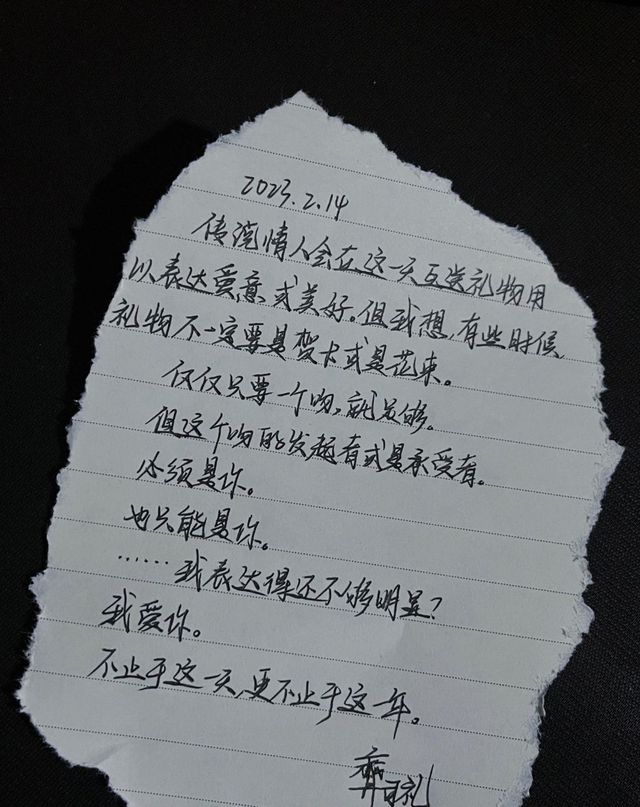 2023.2.14
传说情人会在这一天互送礼物用
以表达爱意或美好。但我想,有些时候,
礼物不一定要是贺卡或是花束。
仅仅只要一个吻,就足够。
但这个吻的发起者或是承受者。
必须是你。
也只能是你。
……我表达得还不够明显?
我爱你。
不止于这一天,更不止于这一年。